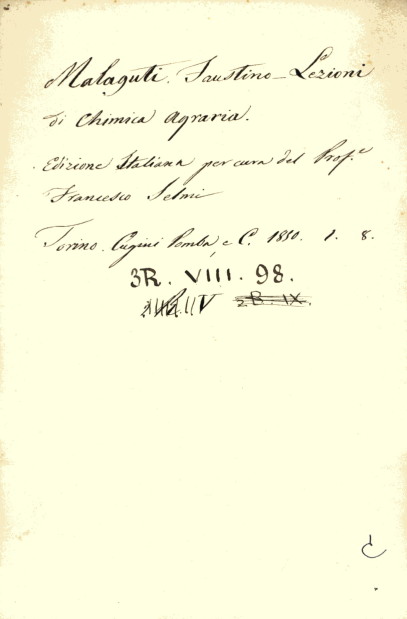 Malaguti. Faustino_ Lezioni
di Chimica Agraria.
Edizione Italiana per cura del Prof.e
Francesco Selmi
Torino. Cugini Pomba, e C. 1850. 1. 8.
3R. VIII. 98.
2B. IX.